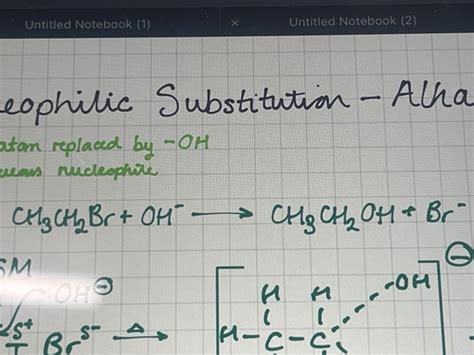 Untitled Notebook (1) × Untitled Notebook (2)
eophilic Substitution - Alka
atom replaced by -OH
ueous nucleophile
CH₃CH₂Br + OH⁻ → CH₃CH₂OH + Br⁻
SM
OH⊖
S⁺ Br S⁻ Δ→
H H -OH ⊖
H-C-C